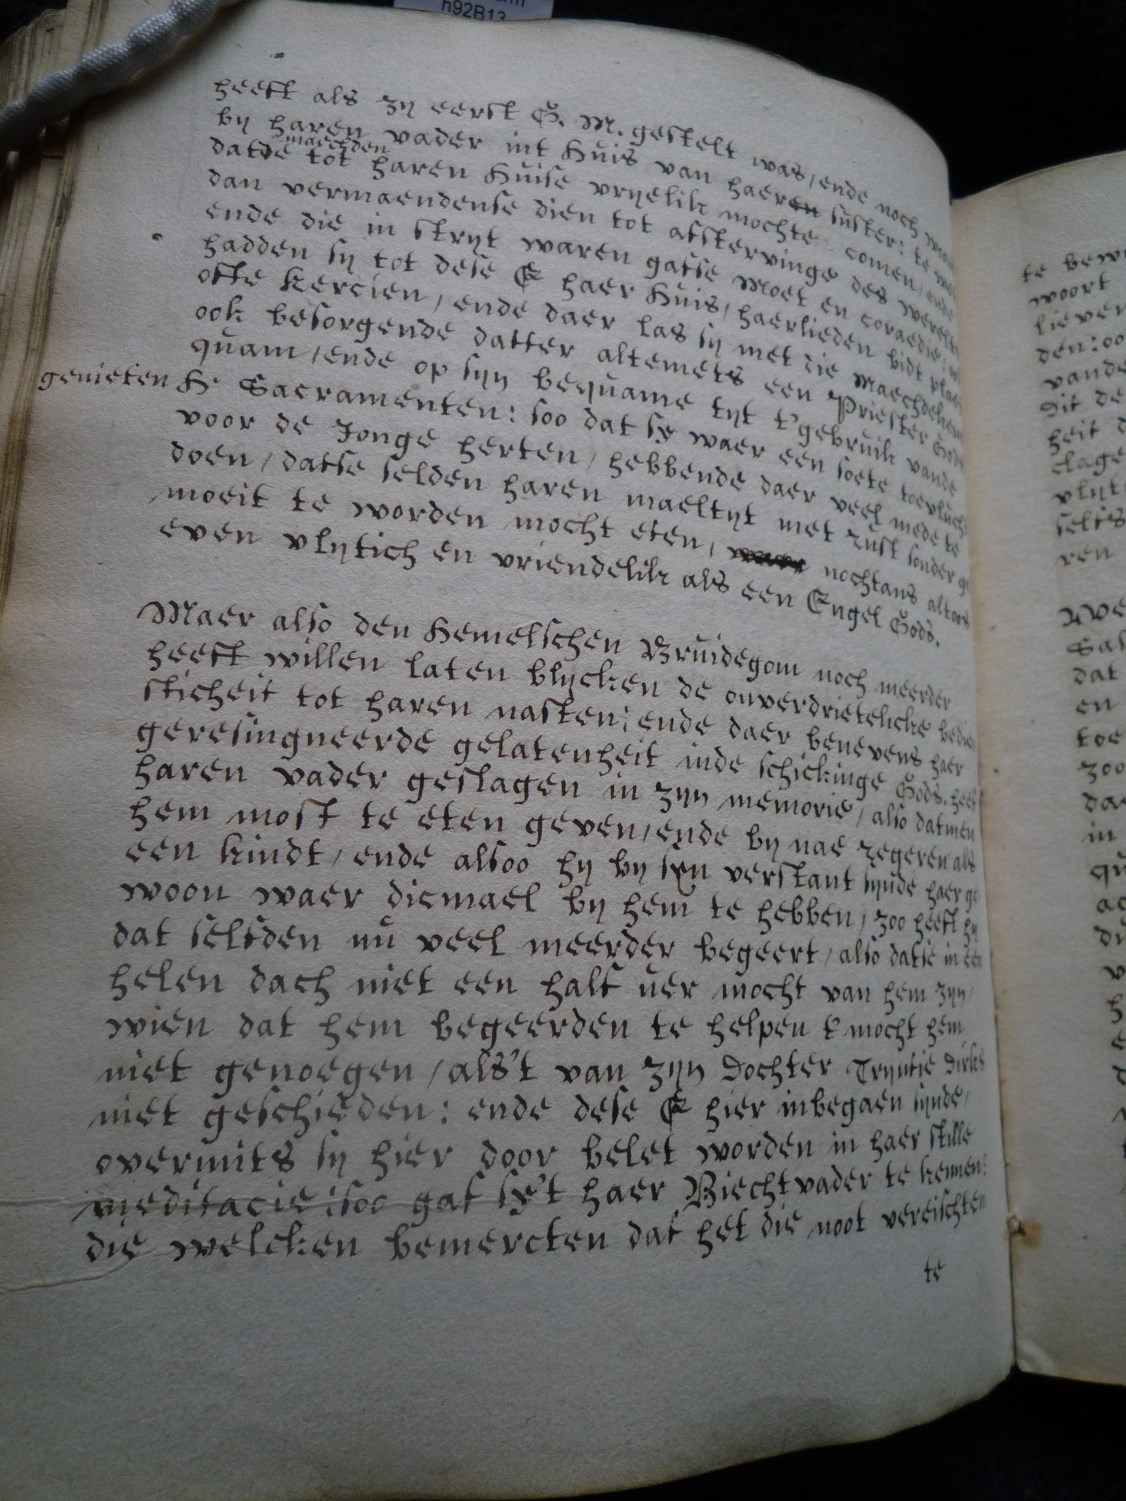 h92B13
heeft als zy eerst G. M. gestelt was, ende noch
by haren vader int Huis van haeren suster: te
maechden
datse tot haren Huise vryelik mochte comen, ende
dan vermaendense dien tot afstervinge des werelts
ende die in stryt waren gafse Moet en coraedie:
hadden sy tot dese & haer Huis, haerlieden bidt plaets
ofte kercken, ende daer las sy met die Maechdekens
ook besorgende datter altemets een Priester Gods
quam, ende op syn bequame tyt t'gebruik vande
genieten H Sacramenten: soo dat sy waer een soete toevlucht
voor de Jonge herten, hebbende daer veel mede te
doen, datse selden haren maeltyt met rust sonder ge
moeit te worden mocht eten, nochtans altoos
even vlytich en vriendelik als een Engel Gods.
Maer also den Hemelschen Bruidegom noch meerder
heeft willen laten blycken de onverdrietelicke bedien
sticheit tot haren nasten; ende daer benevens haer
geresingneerde gelatenheit inde schickinge Gods. heeft
haren vader geslagen in zyn memorie, also datmen
hem most te eten geven, ende by nae regeren als
een kindt, ende alsoo hy by syn verstant synde haer ge
woon waer diemael by hem te hebben, zoo heeft hy
dat selfden nu veel meerder begeert, also datse in een
helen dach niet een half uer mocht van hem zyn,
wien dat hem begeerden te helpen t mocht hem
niet genoegen, als't van zyn Dochter Tryntie Dirks
niet geschieden: ende dese & hier inbegaen synde,
overmits sy hier door belet worden in haer stille
meditacie: soo gaf sy't haer Biechtvader te kennen:
die welcken bemercten dat het die noot vereischten
te
te
woort
liever
den: oo
vande
Dit de
heit
clage
vlyt
selfs
ren
dat
en
toe
zoo
dat
in